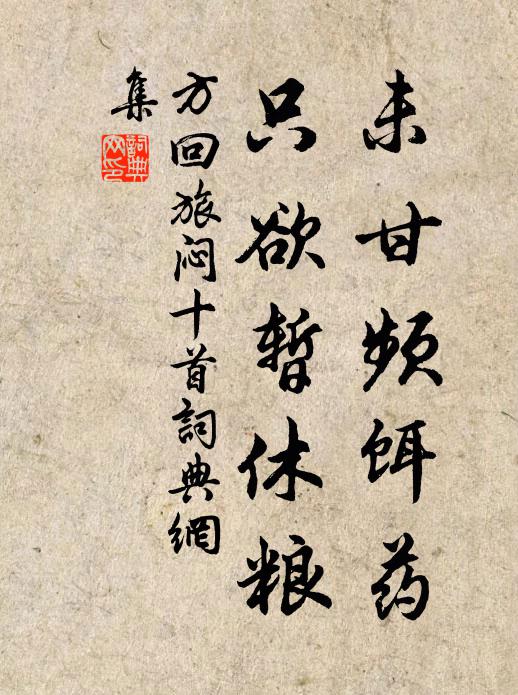 未甘频饵药
只欲暂休粮
方回旅闷十首詞典網
集
詞典網印